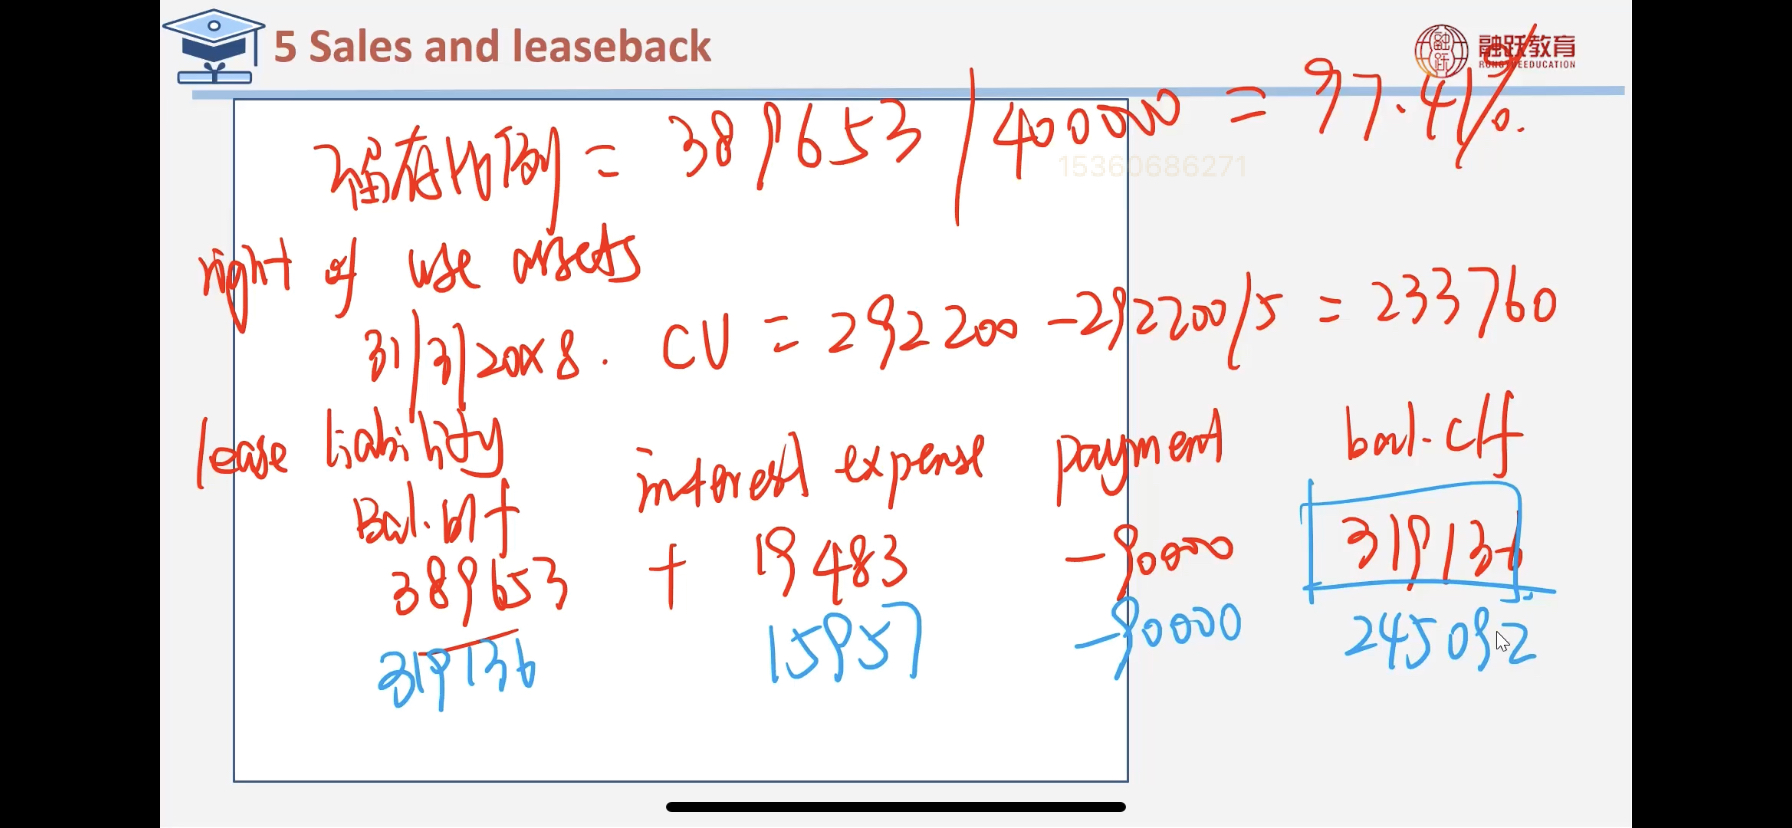 5 Sales and leaseback
融跃教育
RONGYUEEDUCATION
留存比例 = 389653 / 400000 = 97.41%.
15360686271
right of use assets
31/3/20x8. CV = 292200 - 292200/5 = 233760
lease liability
Bal. b/f interest expense payment bal. c/f
389653 + 19483 -90000 319136
319136 15957 -90000 245092